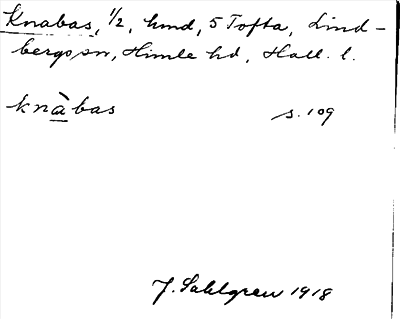 Knabas, 1/2, hmd, 5 Tofta, Lind-
bergs sn, Himle hd, Hall. l.
knàbas s. 109
J. Sahlgren 1918